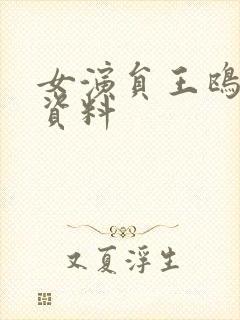 女演員王鴎
資料
又夏浮生